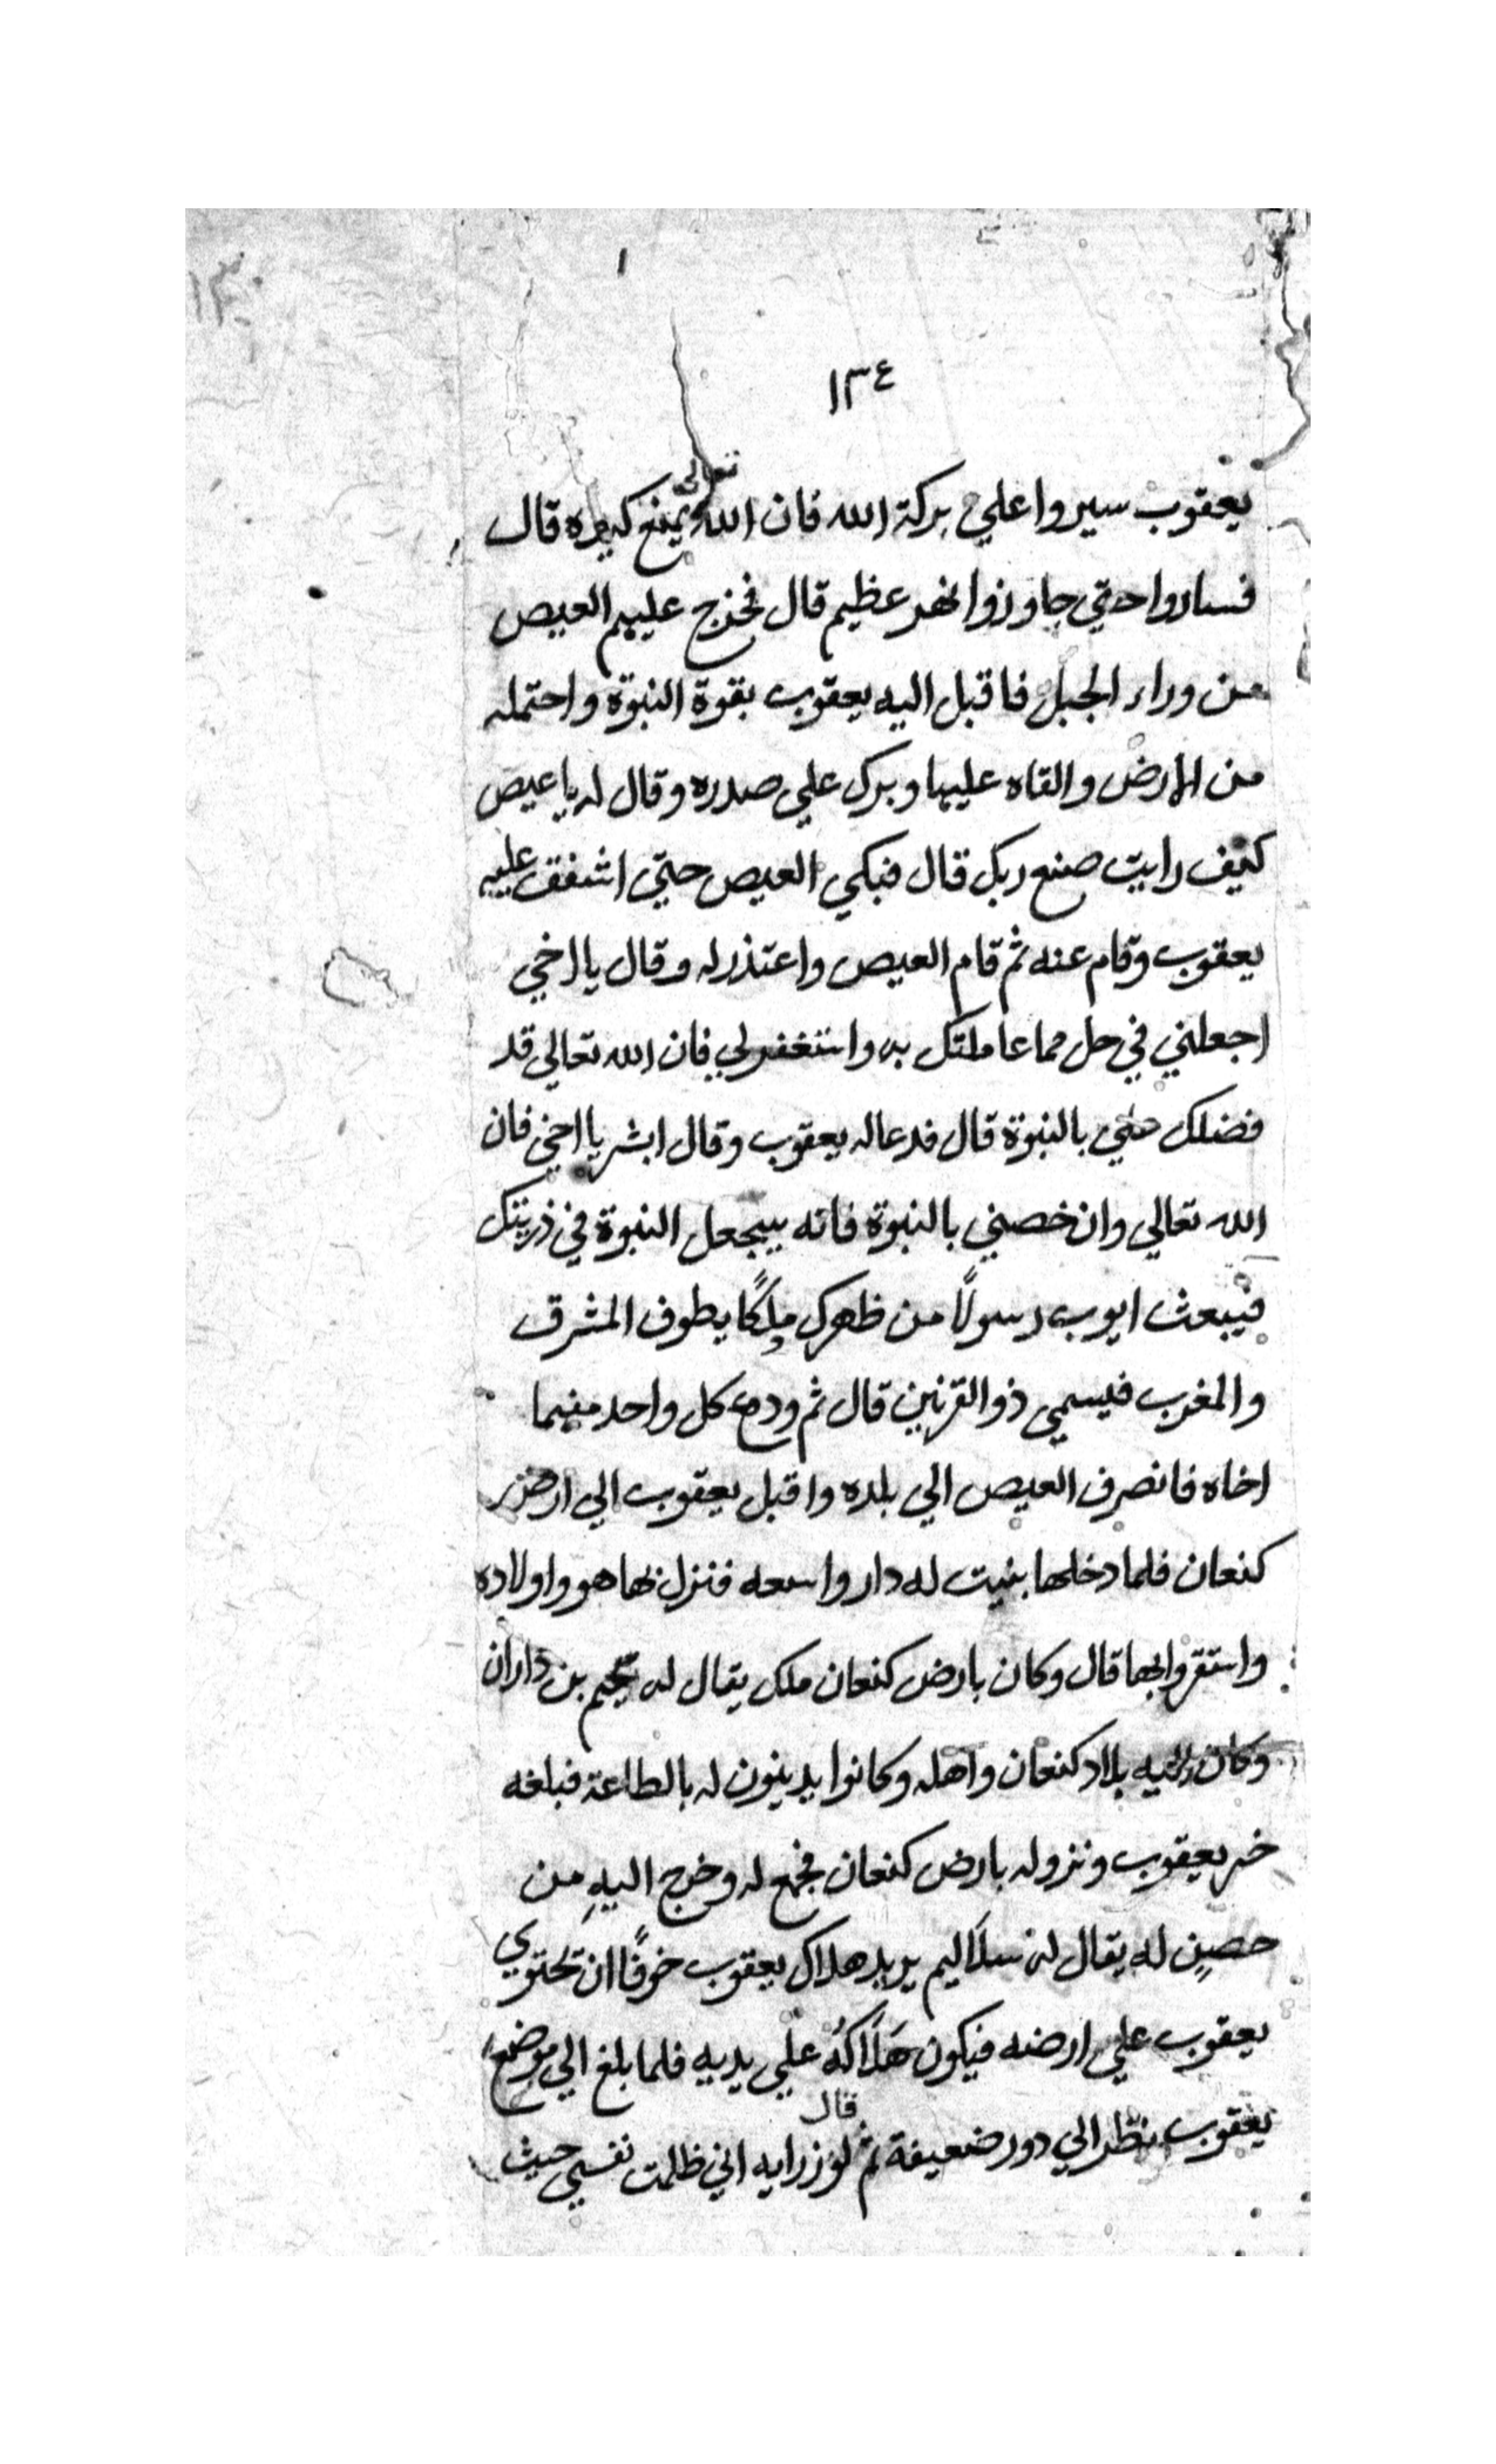 ١٣٤
يعقوب سيروا علي بركة الله فان الله تعالى يمنع كيده قال
فساروا حتي جاوزوا نهر عظيم قال فخرج عليهم العيص
من وراء الجبل فاقبل اليه يعقوب بقوة النبوة واحتمله
من الارض والقاه عليها وبرك علي صدره وقال له يا عيص
كيف رايت صنع ربك قال فبكي العيص حتي اشفق عليه
يعقوب وقام عنه ثم قام العيص واعتذر له وقال يا اخي
اجعلني في حل مما عاملتك به واستغفر لي فان الله تعالي قد
فضلك علي بالنبوة قال فدعا له يعقوب وقال ابشر يا اخي فان
الله تعالي وان خصني بالنبوة فانه سيجعل النبوة في ذريتك
فيبعث ايوب رسولًا من ظهرك ملكًا يطوف المشرق
والمغرب فيسمي ذو القرنين قال ثم ودع كل واحد منهما
اخاه فانصرف العيص الي بلده واقبل يعقوب الي ارض
كنعان فلما دخلها بنيت له دار واسعه فنزل بها هو واولاده
واستقروا بها قال وكان بارض كنعان ملك يقال له بن داران
وكان بلاد كنعان واهله وكانوا يدينون له بالطاعة فبلغه
خبر يعقوب ونزوله بارض كنعان فجمع له وخرج اليهِ من
حصنٍ له يقال له سلَاليم يريد هلاك يعقوب خوفًا ان تحتوي
يعقوب علي ارضه فيكون هَلَاكُه علي يديه فلما بلغ الي موضع
يعقوب نظر الي دور ضعيفة ثم قال لوزرايه اني ظلمت نفسي حيث